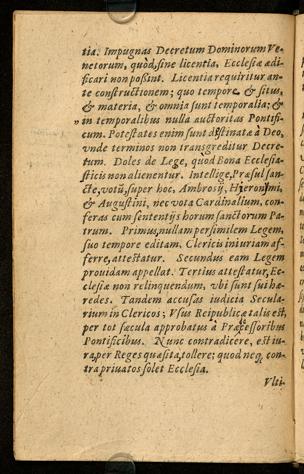 tia. Impugnas Decretum Dominorum Ve-
netorum, quòd, sine licentia, Ecclesiæ ædi-
ficari non possint. Licentia requiritur an-
te constructionem; quo tempore & situs,
& materia, & omnia sunt temporalia; &
in temporalibus nulla auctoritas Pontifi-
cum. Potestates enim sunt distinatæ à Deo,
vnde terminos non transgreditur Decre-
tum. Doles de Lege, quod Bona Ecclesia-
sticis non alienentur. Intellige, Præsul san-
cte, votū, super hoc, Ambrosij, Hieronimi,
& Augustini, nec vota Cardinalium, con-
feras cum sententijs horum sanctorum Pa-
trum. Primus, nullam persimilem Legem,
suo tempore editam, Clericis iniuriam af-
ferre, attestatur. Secundus eam Legem
prouidam appellat. Tertius attestatur, Ec-
clesiæ non relinquendum, vbi sunt sui hæ-
redes. Tandem accusas iudicia Secula-
rium in Clericos; Vsus Reipublicæ talis est,
per tot sæcula approbatus à Præcessoribus
Pontificibus. Nunc contradicere, est iu-
ra, per Reges quæsita, tollere; quod neq, con-
tra priuatos solet Ecclesia.
Vlti-